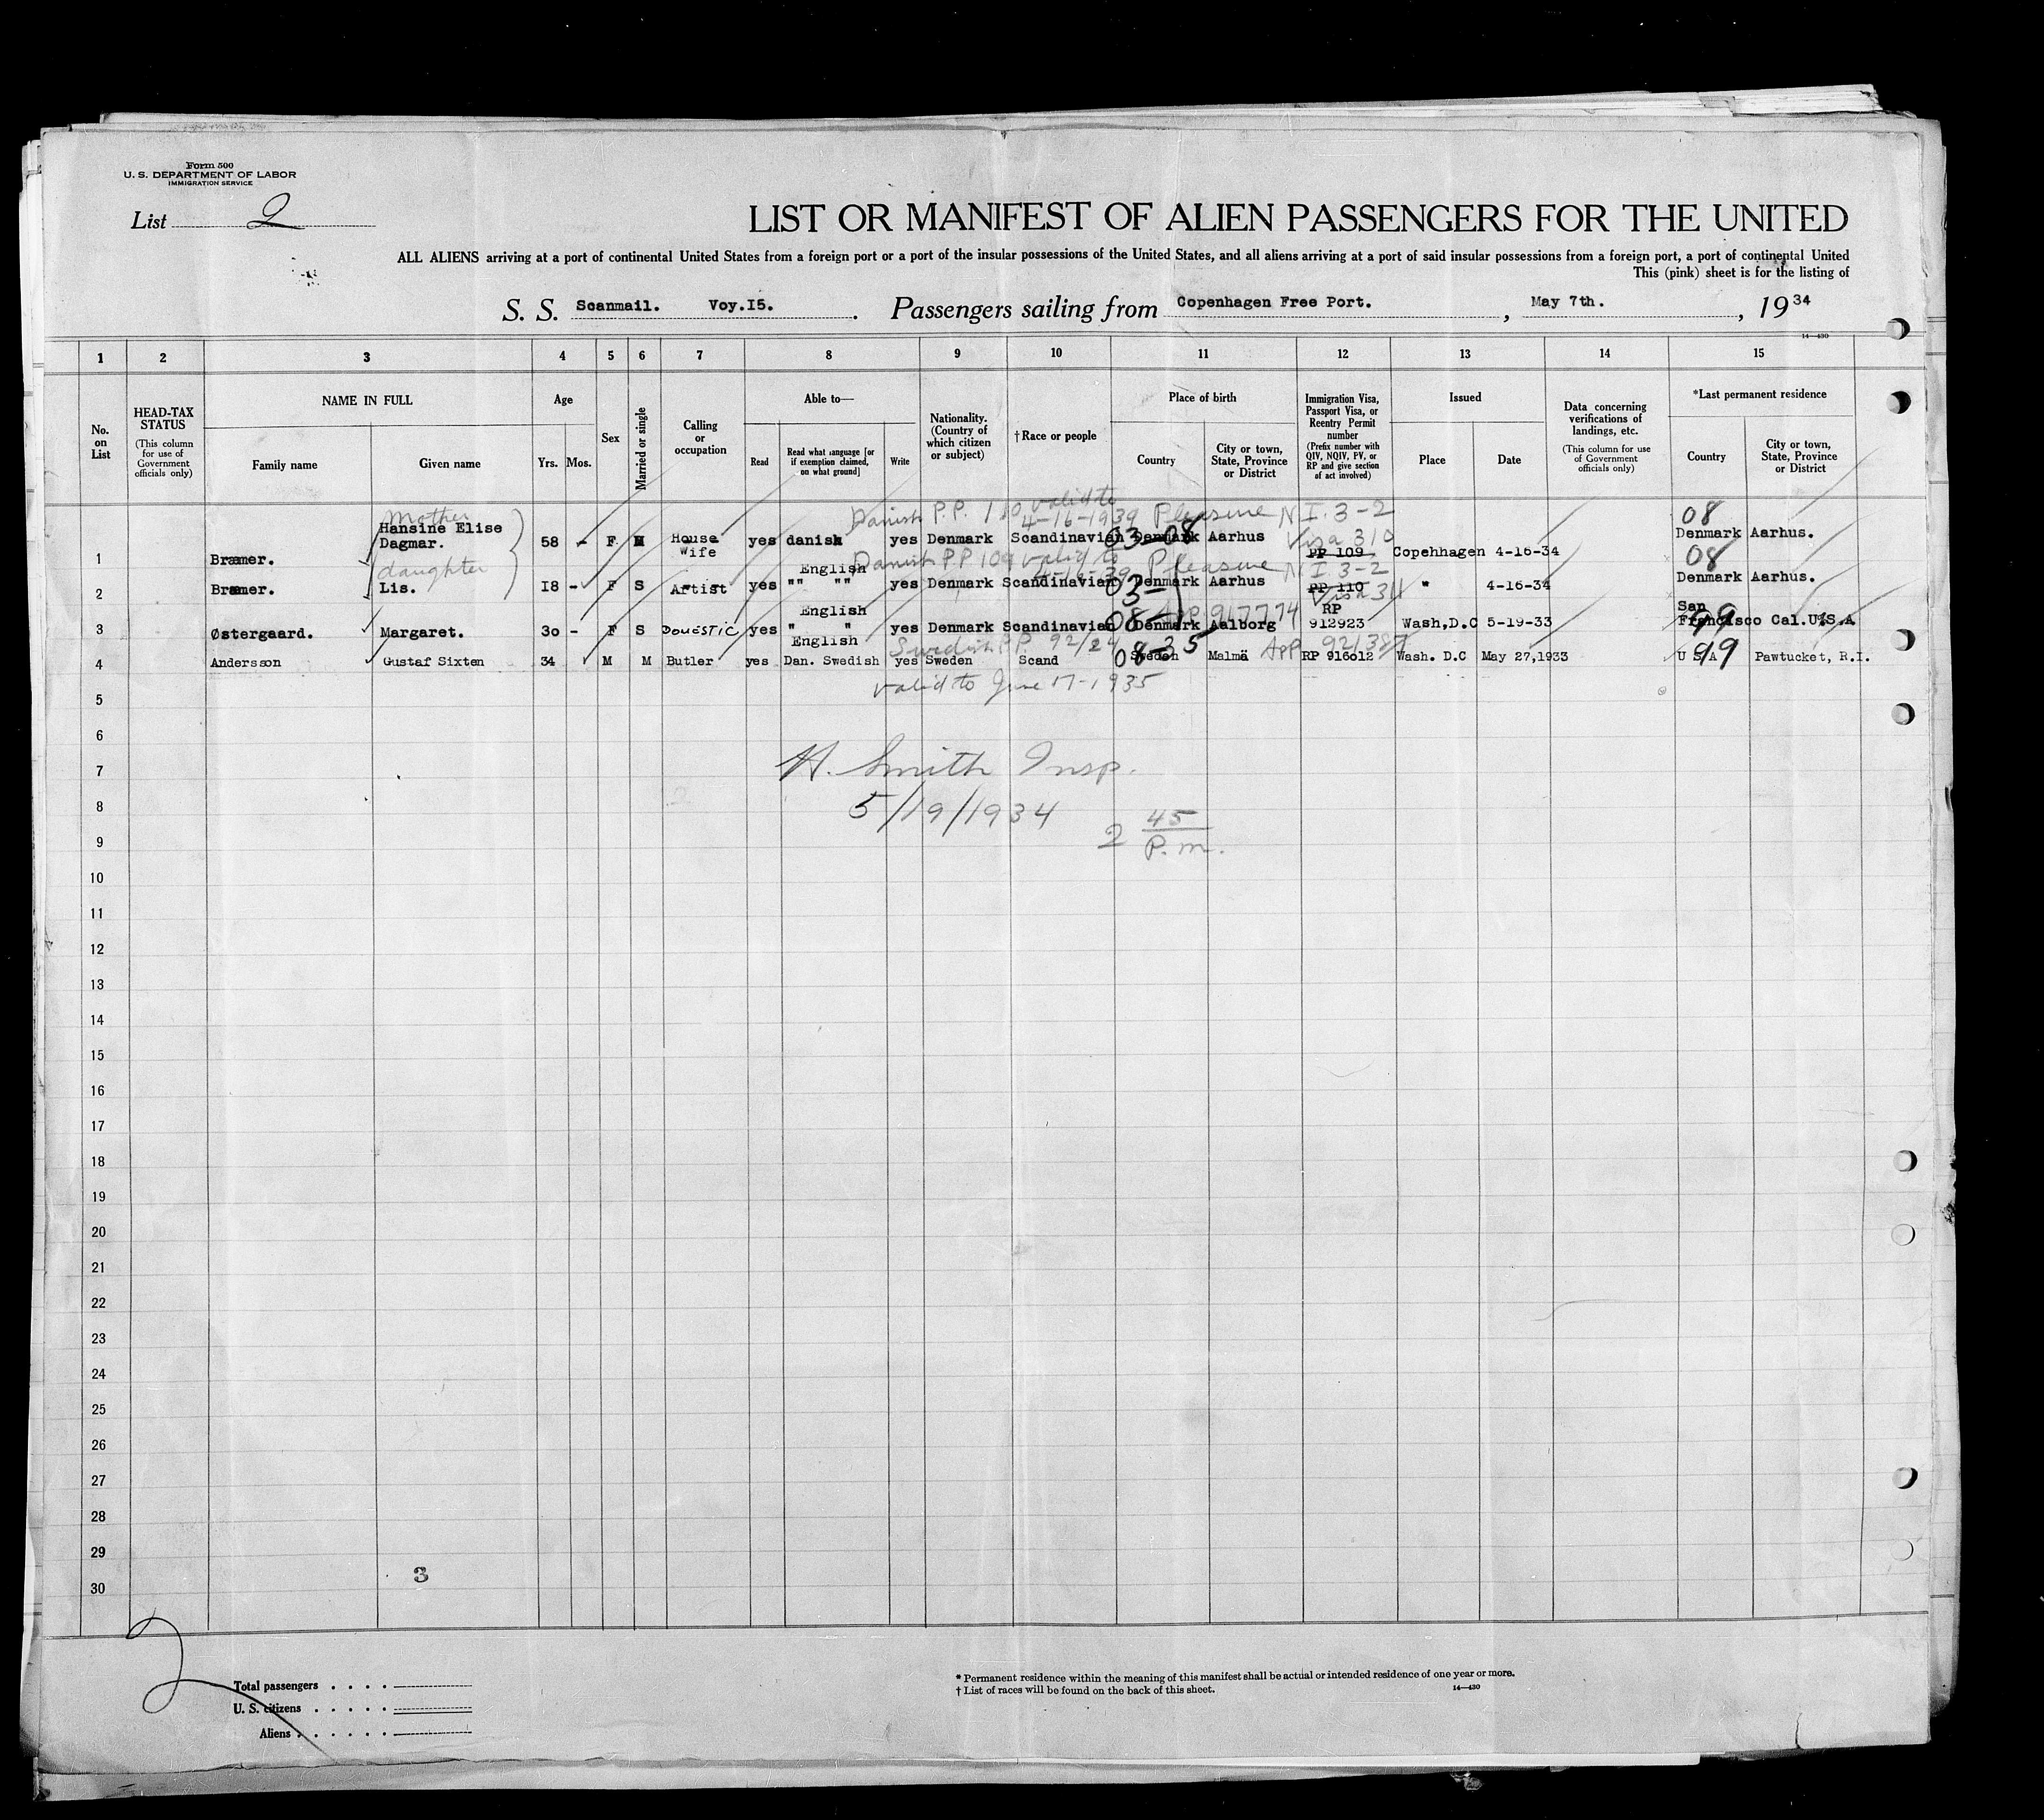 Form 500
U. S. DEPARTMENT OF LABOR
IMMIGRATION SERVICE
List 2
LIST OR MANIFEST OF ALIEN PASSENGERS FOR THE UNITED
ALL ALIENS arriving at a port of continental United States from a foreign port or a port of the insular possessions of the United States, and all aliens arriving at a port of said insular possessions from a foreign port, a port of continental United
This (pink) sheet is for the listing of
S. S. Scanmail. Voy.I5. Passengers sailing from Copenhagen Free Port. , May 7th. , 19 34
14—430
1 2 3 4 5 6 7 8 9 10 11 12 13 14 15
No. on List
HEAD-TAX STATUS
(This column for use of Government officials only)
NAME IN FULL
Family name
Given name
Age
Yrs.
Mos.
Sex
Married or single
Calling or occupation
Able to—
Read
Read what language [or if exemption claimed, on what ground]
Write
Nationality. (Country of which citizen or subject)
†Race or people
Place of birth
Country
City or town, State, Province or District
Immigration Visa, Passport Visa, or Reentry Permit number
(Prefix number with QIV, NQIV, PV, or RP and give section of act involved)
Issued
Place
Date
Data concerning verifications of landings, etc.
(This column for use of Government officials only)
*Last permanent residence
Country
City or town, State, Province or District
Mother Danish P.P. 110 valid to
4-16-1939 Pleasure N I. 3-2 08
Hansine Elise
1 Bræmer. Dagmar. 58 - F M House Wife yes danish yes Denmark Scandinavian 03-08 Denmark Aarhus Visa 310 PP 109 Copenhagen 4-16-34 Denmark Aarhus.
daughter English Danish P.P 109 valid to
4-16-39 Pleasure N I. 3-2 08
2 Bræmer. Lis. I8 - F S Artist yes "" "" yes Denmark Scandinavian 03- Denmark Aarhus PP 110 Visa 311 " 4-16-34 Denmark Aarhus.
English 08- App. 917774 RP San
3 Østergaard. Margaret. 30 - F S DOMESTIC yes " " yes Denmark Scandinavian Denmark Aalborg 912923 Wash,D.C 5-19-33 Francisco Cal.U.S.A 99
English Swedish P.P. 92/24 App 921387
4 Andersson Gustaf Sixten 34 M M Butler yes Dan. Swedish yes Sweden Scand 08-35 Sweden Malmä RP 916012 Wash. D.C May 27,1933 U S A 99 Pawtucket, R.I.
valid to June 17-1935
5
6
7 H. Smith Insp.
8 5/19/1934 2 45
9 P.m.
10
11
12
13
14
15
16
17
18
19
20
21
22
23
24
25
26
27
28
29
3
30
2
Total passengers
U. S. citizens
Aliens
* Permanent residence within the meaning of this manifest shall be actual or intended residence of one year or more.
† List of races will be found on the back of this sheet.
14—430